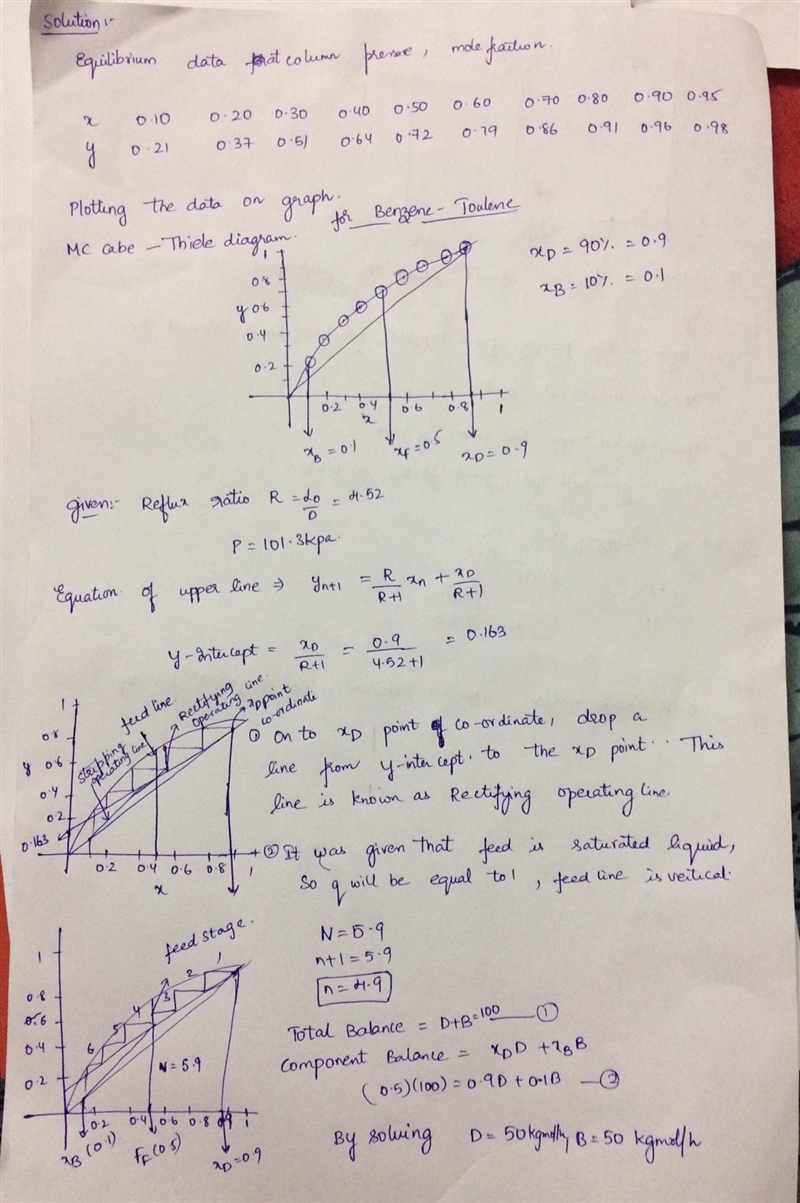 Solution:-
Equilibrium data at column pressure, mole fraction.
x 0.10 0.20 0.30 0.40 0.50 0.60 0.70 0.80 0.90 0.95
y 0.21 0.37 0.51 0.64 0.72 0.79 0.86 0.91 0.96 0.98
Plotting the data on graph.
for Benzene - Toulene
MC cabe - Thiele diagram.
1
0.8
y 0.6
0.4
0.2
0.2 0.4 0.6 0.8 1
x
xB = 0.1 xF = 0.5 xD = 0.9
xD = 90% = 0.9
xB = 10% = 0.1
given:- Reflux ratio R = Lo/D = 4.52
P = 101.3kpa.
Equation of upper line ⇒ yn+1 = R/R+1 xn + xD/R+1
y-intercept = xD/R+1 = 0.9/4.52+1 = 0.163
1
0.8
y 0.6
0.4
0.2
0.163
0.2 0.4 0.6 0.8 1
x
stripping operating line
feed line
Rectifying operating line.
xD point co-ordinate
① On to xD point of co-ordinate, drop a
line from y-intercept to the xD point. This
line is known as Rectifying operating line.
② It was given that feed is saturated liquid,
So q will be equal to 1, feed line is veitical.
feed stage.
1
0.8
0.6
0.4
0.2
1 2 3 4 5 6
N = 5.9
0.2 0.4 0.6 0.8 0.9 1
xB (0.1) FF (0.5) xD = 0.9
N = 5.9
n+1 = 5.9
n = 4.9
Total Balance = D+B = 100 — ①
Component Balance = xD D + xB B
(0.5)(100) = 0.9D + 0.1B — ②
By solving D = 50 kgmol/h, B = 50 kgmol/h